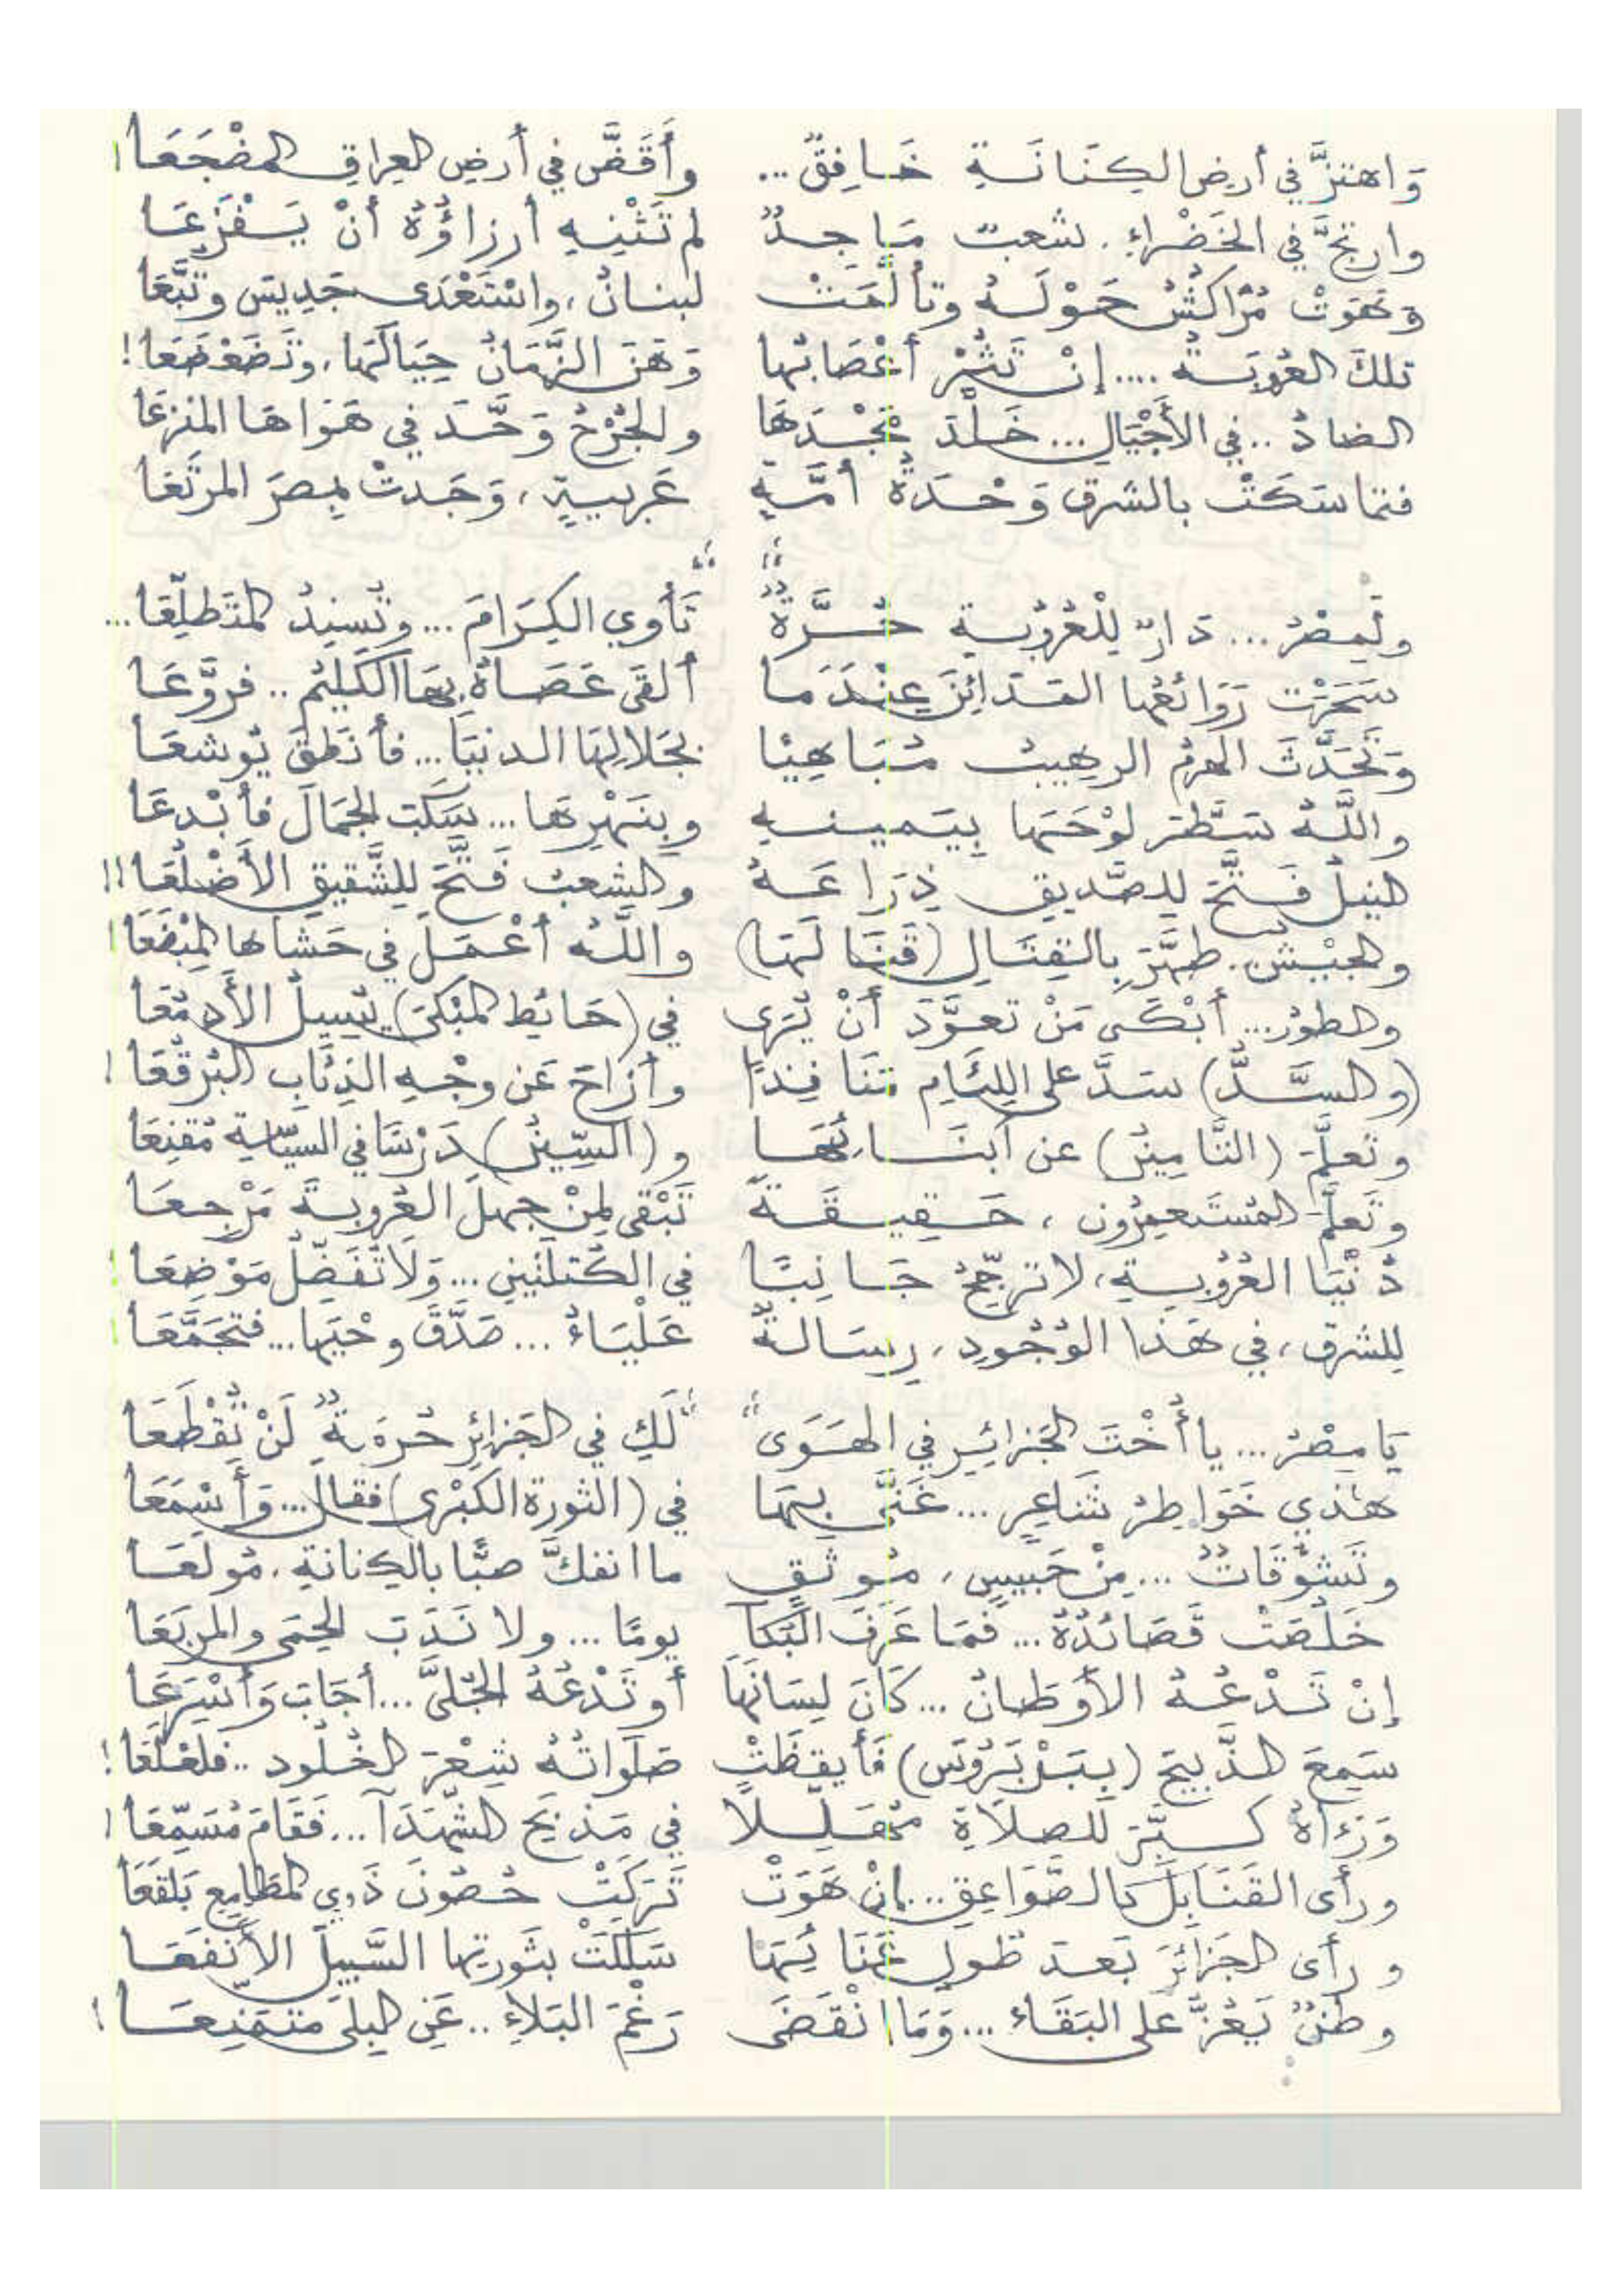 وَاهتزَّ في أرضِ الكِنَانَةِ خَافِقٌ... وأَقَضَّ في أرضِ العِراقِ المضْجَعَا!
وارتجَّ في الخَضْراءِ، شعبٌ مَاجِدٌ لم تَثْنِهِ أرزاؤُهُ أنْ يَفْزَعَا
وَهَوَتْ مُرّاكشُ حَوْلَهُ وتألَّمَتْ لبنانُ، واسْتَعْدَى جَدِيسَ وتُبَّعَا
تلكَ العُروبَةُ.... إنْ تَثُرْ أعْصَابُها وَهَنَ الزَّمَانُ حِيَالَهَا، وتَضَعْضَعَا!
الضادُ.. في الأَجْيَالِ... خَلَّدَ مَجْدَهَا والجُرْحُ وَحَّدَ في هَوَاهَا المنزعَا
فتماسَكَتْ بالشرقِ وَحْدَةُ أمَّةٍ عَربيةٍ، وَجَدتْ بمِصرَ المرتَعَا
ولِمِصْرُ... دَارٌ لِلْعُرُوبةِ حُرَّةٌ تَأوي الكِرَامَ... وتُسنِدُ المتَطلِّعَا...
سَحَرَتْ رَوَائعُها المدَائِنَ عِنْدَمَا ألقَى عَصَاهُ بِهَا الكَلِيمُ.. فروَّعَا
وَتَحَدَّثَ الهرمُ الرهِيبُ مُبَاهِيًا بجَلالِهَا الدنيَا... فأنطقَ يُوشعَا
واللَّهُ سَطَّرَ لوْحَهَا بِيَمينهِ وبِنَهْرِهَا... سَكَبَ الجمَالَ فأبْدعَا
النيلُ فَتَّحَ للصَّديقِ ذِرَاعَهُ والشعبُ فَتَّحَ للشَّقيقِ الأَضْلُعَا!!
والجيْشُ.. طهَّرَ بالقِتَالِ (قَنَالَهَا) واللَّهُ أعْمَلَ في حَشاها المِبْضَعَا!
والطورُ... أبْكَى مَنْ تعوَّدَ أنْ يُرَى في (حَائطِ المبْكَى) يُسِيلُ الأَدمُعَا
(والسَّدُّ) سَدَّ على اللِّئَامِ مَنَافِذًا وأزاحَ عَن وجْهِ الذِّئابِ البُرقُعَا!
وتَعلَّمَ (التَّامِيزُ) عن أبنَائِهَا و(السِّينُ) دَرْسًا في السيّاسةِ مُقنِعَا
وتَعلَّمَ المُستَعمِرُون، حَقِيقَةً تَبْقَى لِمنْ جهلَ العُروبةَ مَرْجعَا
دُنْيَا العُرُوبةِ، لا تُرجِّحُ جَانِبًا في الكُتلتَينِ... وَلَا تُفَضِّلُ مَوْضِعَا!
لِلشرقِ، في هَذا الوُجُودِ، رِسَالةٌ عَلْيَاءُ... صَدَّقَ وحْيَها... فتجَمَّعَا!
يَا مِصْرُ... يا أُخْتَ الجَزائِرِ في الهَوَى لَكِ في الجَزائِرِ حُرمَةٌ لَنْ تُقْطَعَا
هذي خَوَاطِرُ شَاعِرٍ... غَنَّى بِهَا في (الثورةِ الكُبْرى) فقال... وَأَسْمَعَا
وتَشوُّقَاتُ... مِنْ حَبيسٍ، مُوثَقٍ ما انفكَّ صبًّا بالكِنانةِ، مُولَعَا
خَلُصَتْ قَصَائدُهُ... فَمَا عَرَفَ البُكَا يومًا... ولا نَدَبَ الحِمَى والمربَعَا
إنْ تَدْعُهُ الأوطَانُ... كَانَ لِسَانَهَا أو تَدْعُهُ الجُلَّى... أجَابَ وَأسْرَعَا
سَمِعَ الذَّبيحَ (بِبَرْبَرُوسَ) فَأيقظَتْ صَلَواتُهُ شِعْرَ الخُلُودِ.. فلَعْلَعَا!
وَرَآهُ كبَّرَ للصلَاةِ مُهَلِّلًا في مَذبَحِ الشُّهَدَا... فَقَامَ مُسَمِّعَا!
ورأى القَنَابِلَ كالصَّوَاعِقِ... إنْ هَوَتْ تَرَكَتْ حُصُونَ ذَوِي المطَامِعِ بَلْقَعَا
ورأى الجَزَائِرَ بَعدَ طُولِ عَنَائِهَا سَلَكَتْ بثَورتِهَا السَّبيلَ الأنفَعَا
وطنٌ يَعُزُّ على البَقَاءِ... وَمَا انْقَضَى رَغْمَ البَلاءِ.. عَنِ البِلَى مُتمَنِّعَا!